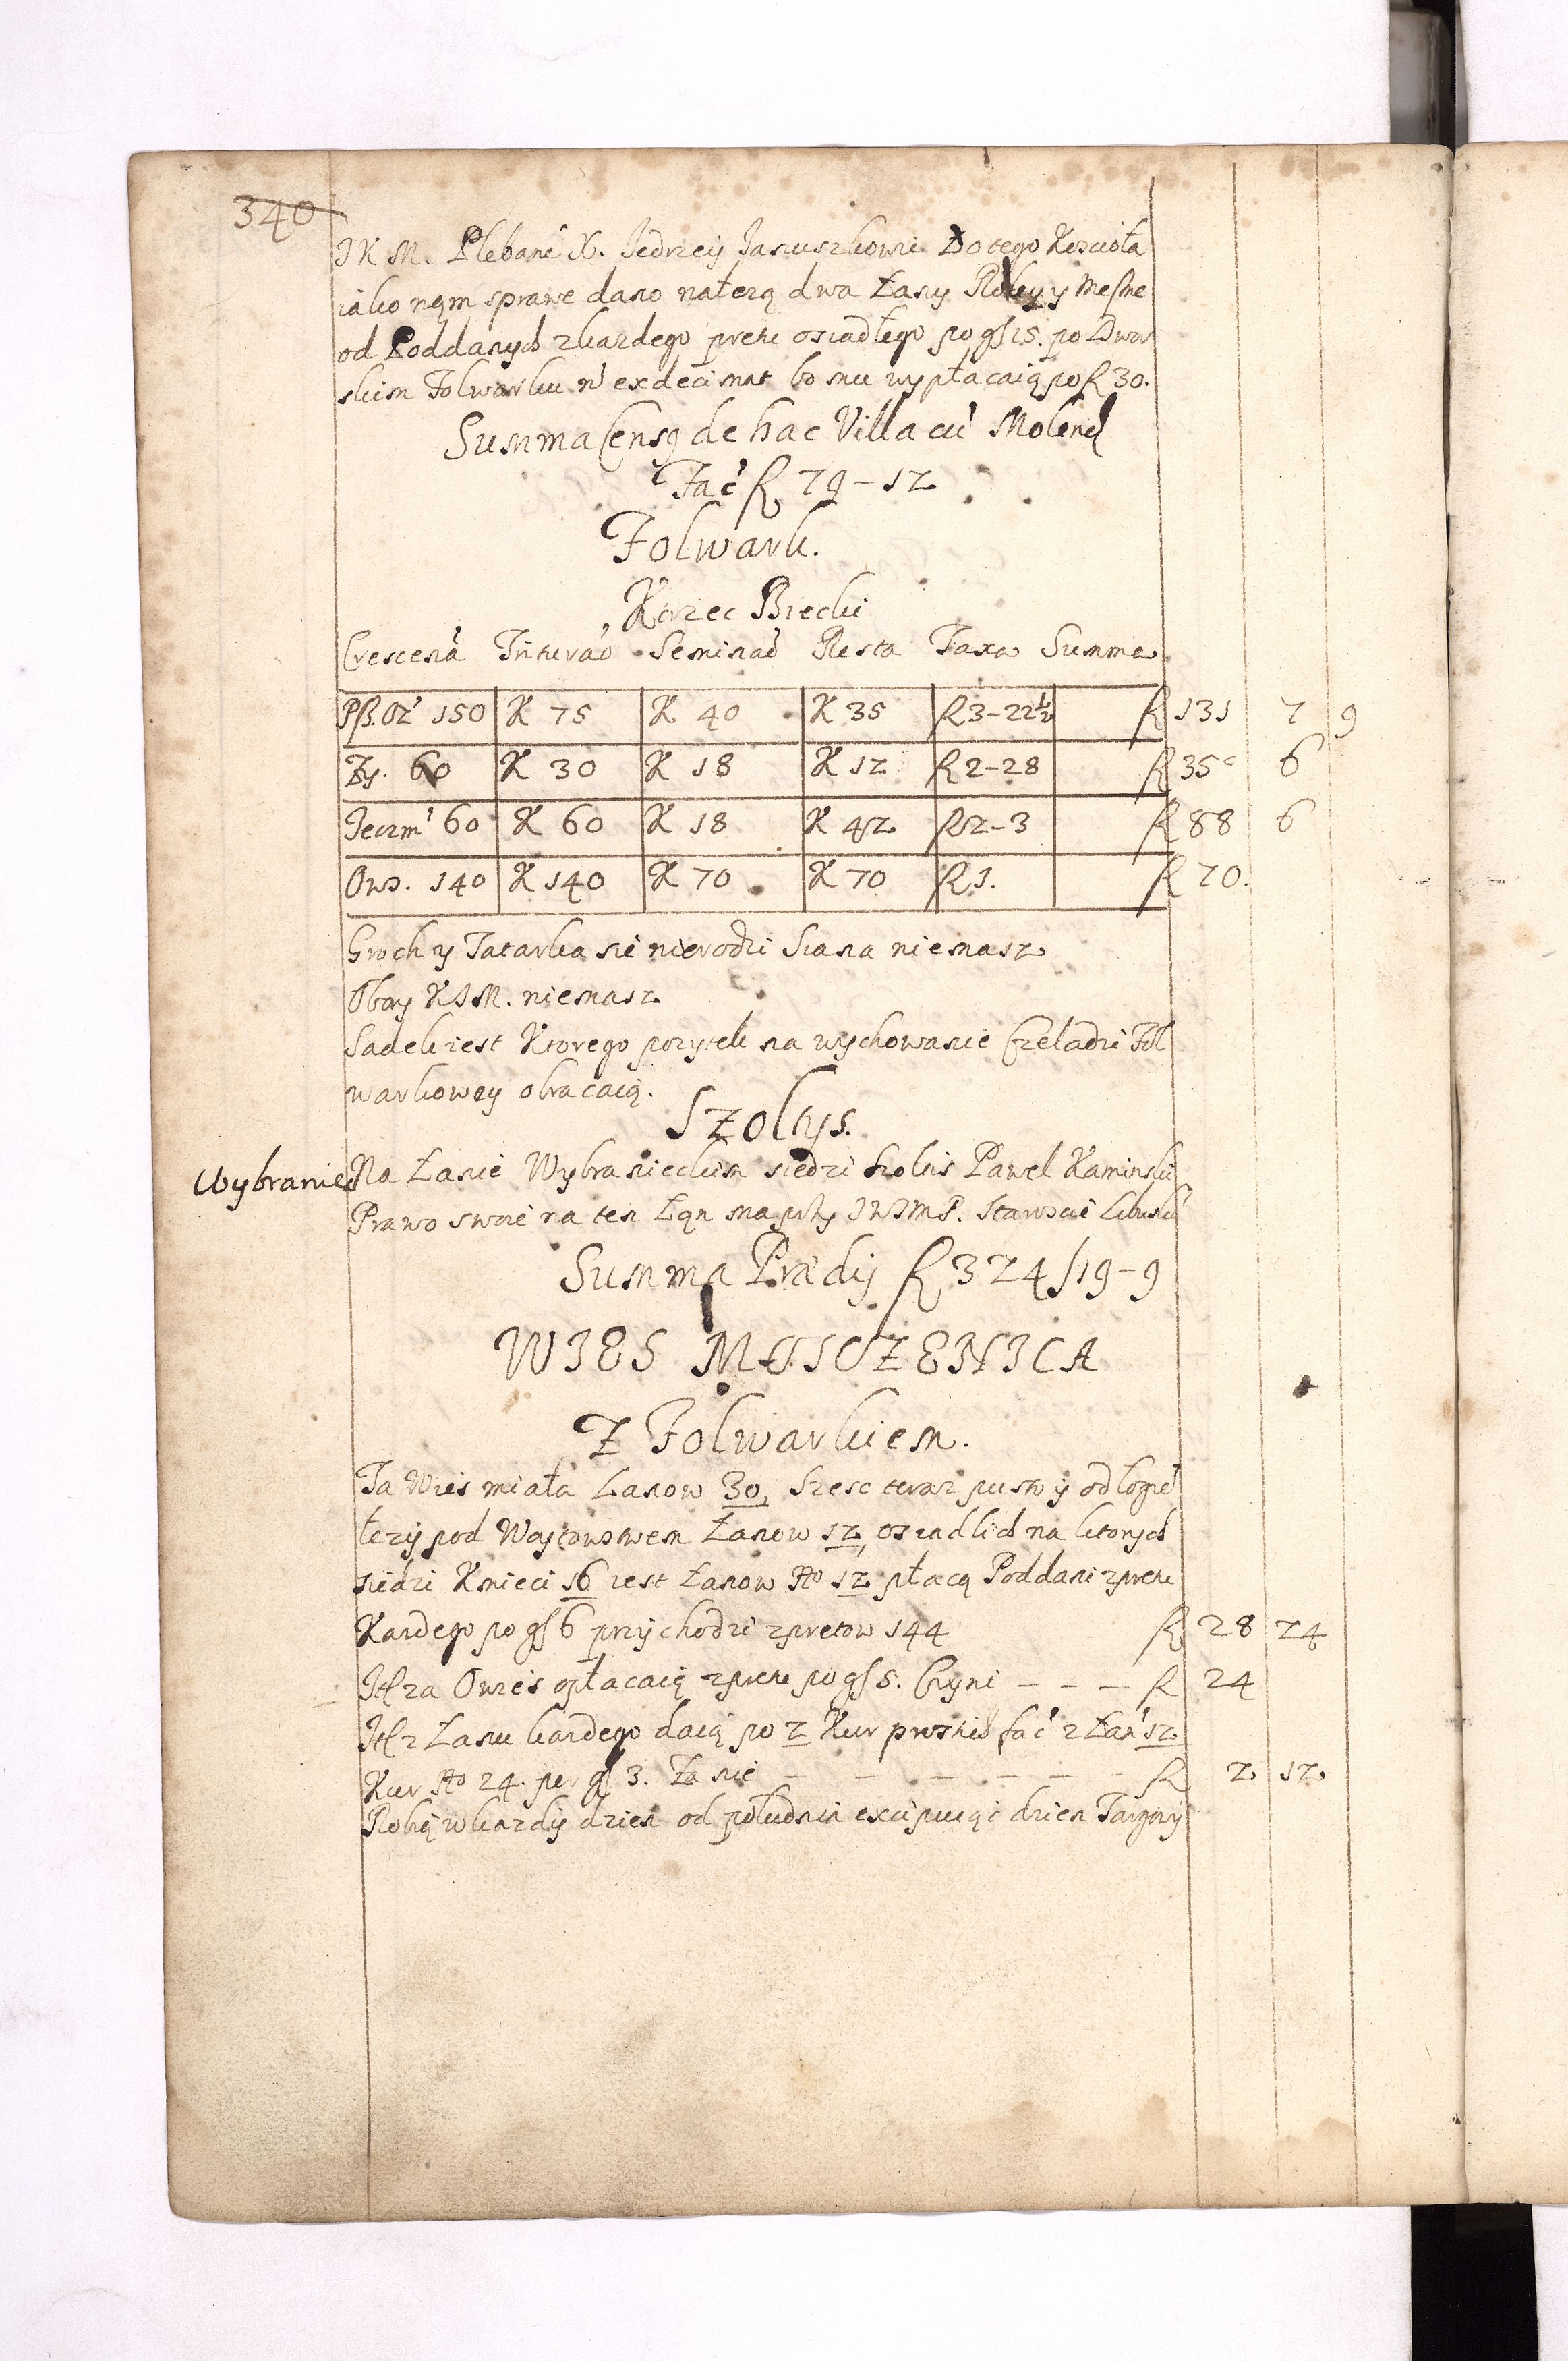 340
JKM. Plebanē X. Jedrzeiį Januszkowic Do tego Koscioła
iako nąm sprawe dano należą dwa Łany Roley y Meszne
od Poddanych z kazdego preta osiadłego po gſ 15. po Dwor
skim Folwarku nᵉ exdecimat bo mu wypłacaią po f 30.
Summa Censꝰ de hac Villa cū Molend
Facᵗ f 79 – 12
Folwark.
Korzec Biecki
Crescenᵃ Triturāo Seminaō Resta Taxa Summa
Psz. Ozᵉ 150 K 75 K 40 K 35 f 3–22½ f 131 7 9
Zy. 60 K 30 K 18 K 12 f 2–28 f 35 6
Jeczmᵉ 60 K 60 K 18 K 42 f 2–3 f 88 6
Ows. 140 K 140 K 70 K 70 f 1. f 70.
Groch y Tatarka sie nierodzi Siana niemasz
Obory KJM. niemasz
Sadek iest Ktorego pozytek na wychowanie Czeladzi Fol
warkowey obracaią.
Szoltys.
Wybraniec
Na Łanie Wybranieckim siedzi Szoltis Pawel Kaminski
Prawo swoie na ten Łąn ma przy JWJMP. Staroscie Libusk
Summa Prædij f 324 / 19 – 9
WIES MUSCZENICA
Z Folwarkiem.
Ta Wies miała Lanow 30, Szesc teraz pusty y odłogie
łezy pod Woytowstwem Łanow 12, osiadlich na ktorych
siedzi Kmieci 16 iest Łanow Nᵒ 12 płacą Poddani z preta
Kazdego po gſ 6 przychodzi z pretow 144 f 28 24
Itē za Owies opłacaią z preta po gſ 5. Czyni – – – f 24
Itē z Łanu kazdego daią po 2 Kur prostich facᵗ z Łan 12
Kur Nᵒ 24. per gſ 3. Łanie – – – – – – f 2 12
Robią w kazdy dzien od południa excipuiąc dzien Targowy